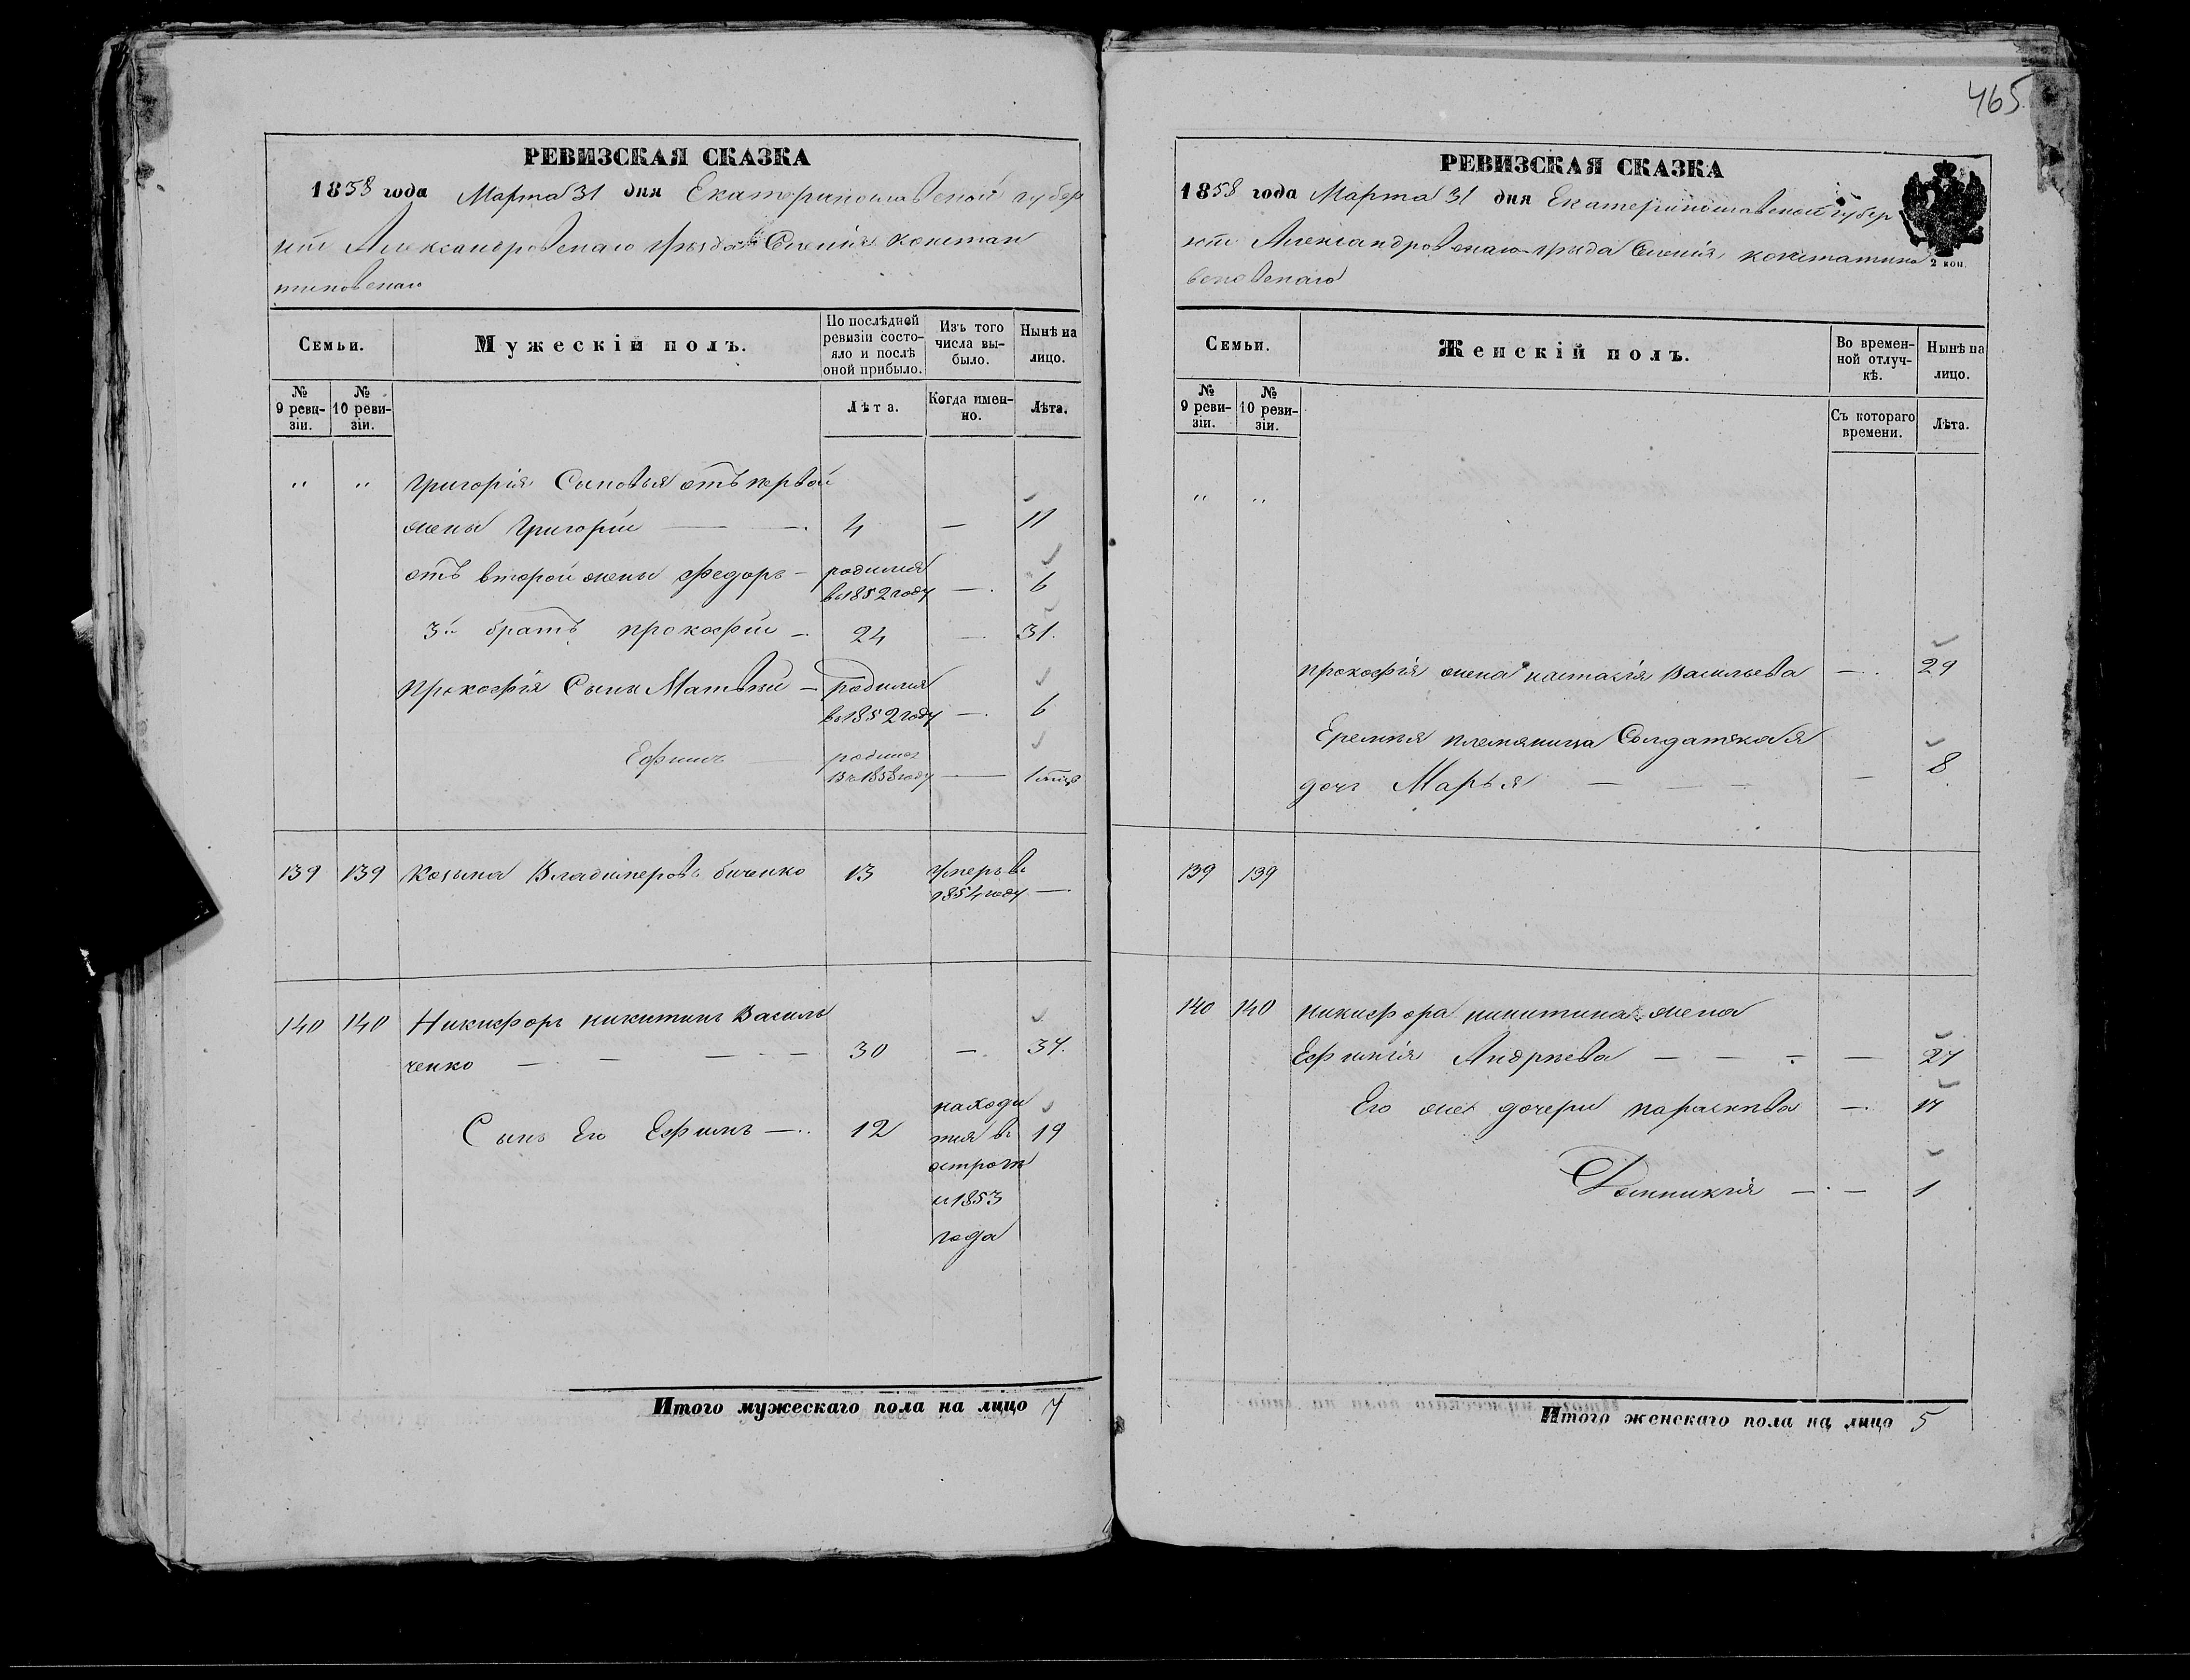 465
РЕВИЗСКАЯ СКАЗКА
1858 года Марта 31 дня Екатеринославской губер
ніи Александровскаго уѣзда Селенія констан
тиновскаго
Семьи.
Мужескій полъ.
По послѣдней ревизіи состояло и послѣ оной прибыло.
Изъ того числа выбыло.
Нынѣ на лицо.
№ 9 ревизіи.
№ 10 ревизіи.
Лѣта.
Когда именно.
Лѣта.
" " Григорія Сыновья отъ первой
жены Григорій — — 4 — 11
отъ второй жены Федоръ — родился
въ 1852 году — 6
3й братъ прокофій — 24 — 31.
Прокофія Сынъ Матвѣй — родился
въ 1852 году — 6
Ефимъ — родился
въ 1858 году — 1 мѣсць
139 139 Козьма Владимеровъ биченко 13 Умеръ въ
1854 году —
140 140 Никифоръ никитинъ Василь
ченко — — — — 30 — 37.
Сынъ Его Ефимъ — 12 находи
тся въ 19
острогѣ
съ 1853
года
Итого мужескаго пола на лицо 7
РЕВИЗСКАЯ СКАЗКА
1858 года Марта 31 дня Екатеринославской губер
ніи Александровскаго уѣзда Селенія
2 коп.
Семьи.
Женскій полъ.
Во временной отлучкѣ.
Нынѣ на лицо.
№ 9 ревизіи.
№ 10 ревизіи.
Съ котораго времени.
Лѣта.
" "
прокофія жена настасія Васильева — 29
Еремѣя племяница Солдатская
дочь Марья — — — — 8
139 139
140 140 никифора никитина жена
Ефимія Андреева — — — — 27
Его же дочери парасковья — 17
Домникія — — 1
Итого женскаго пола на лицо 5